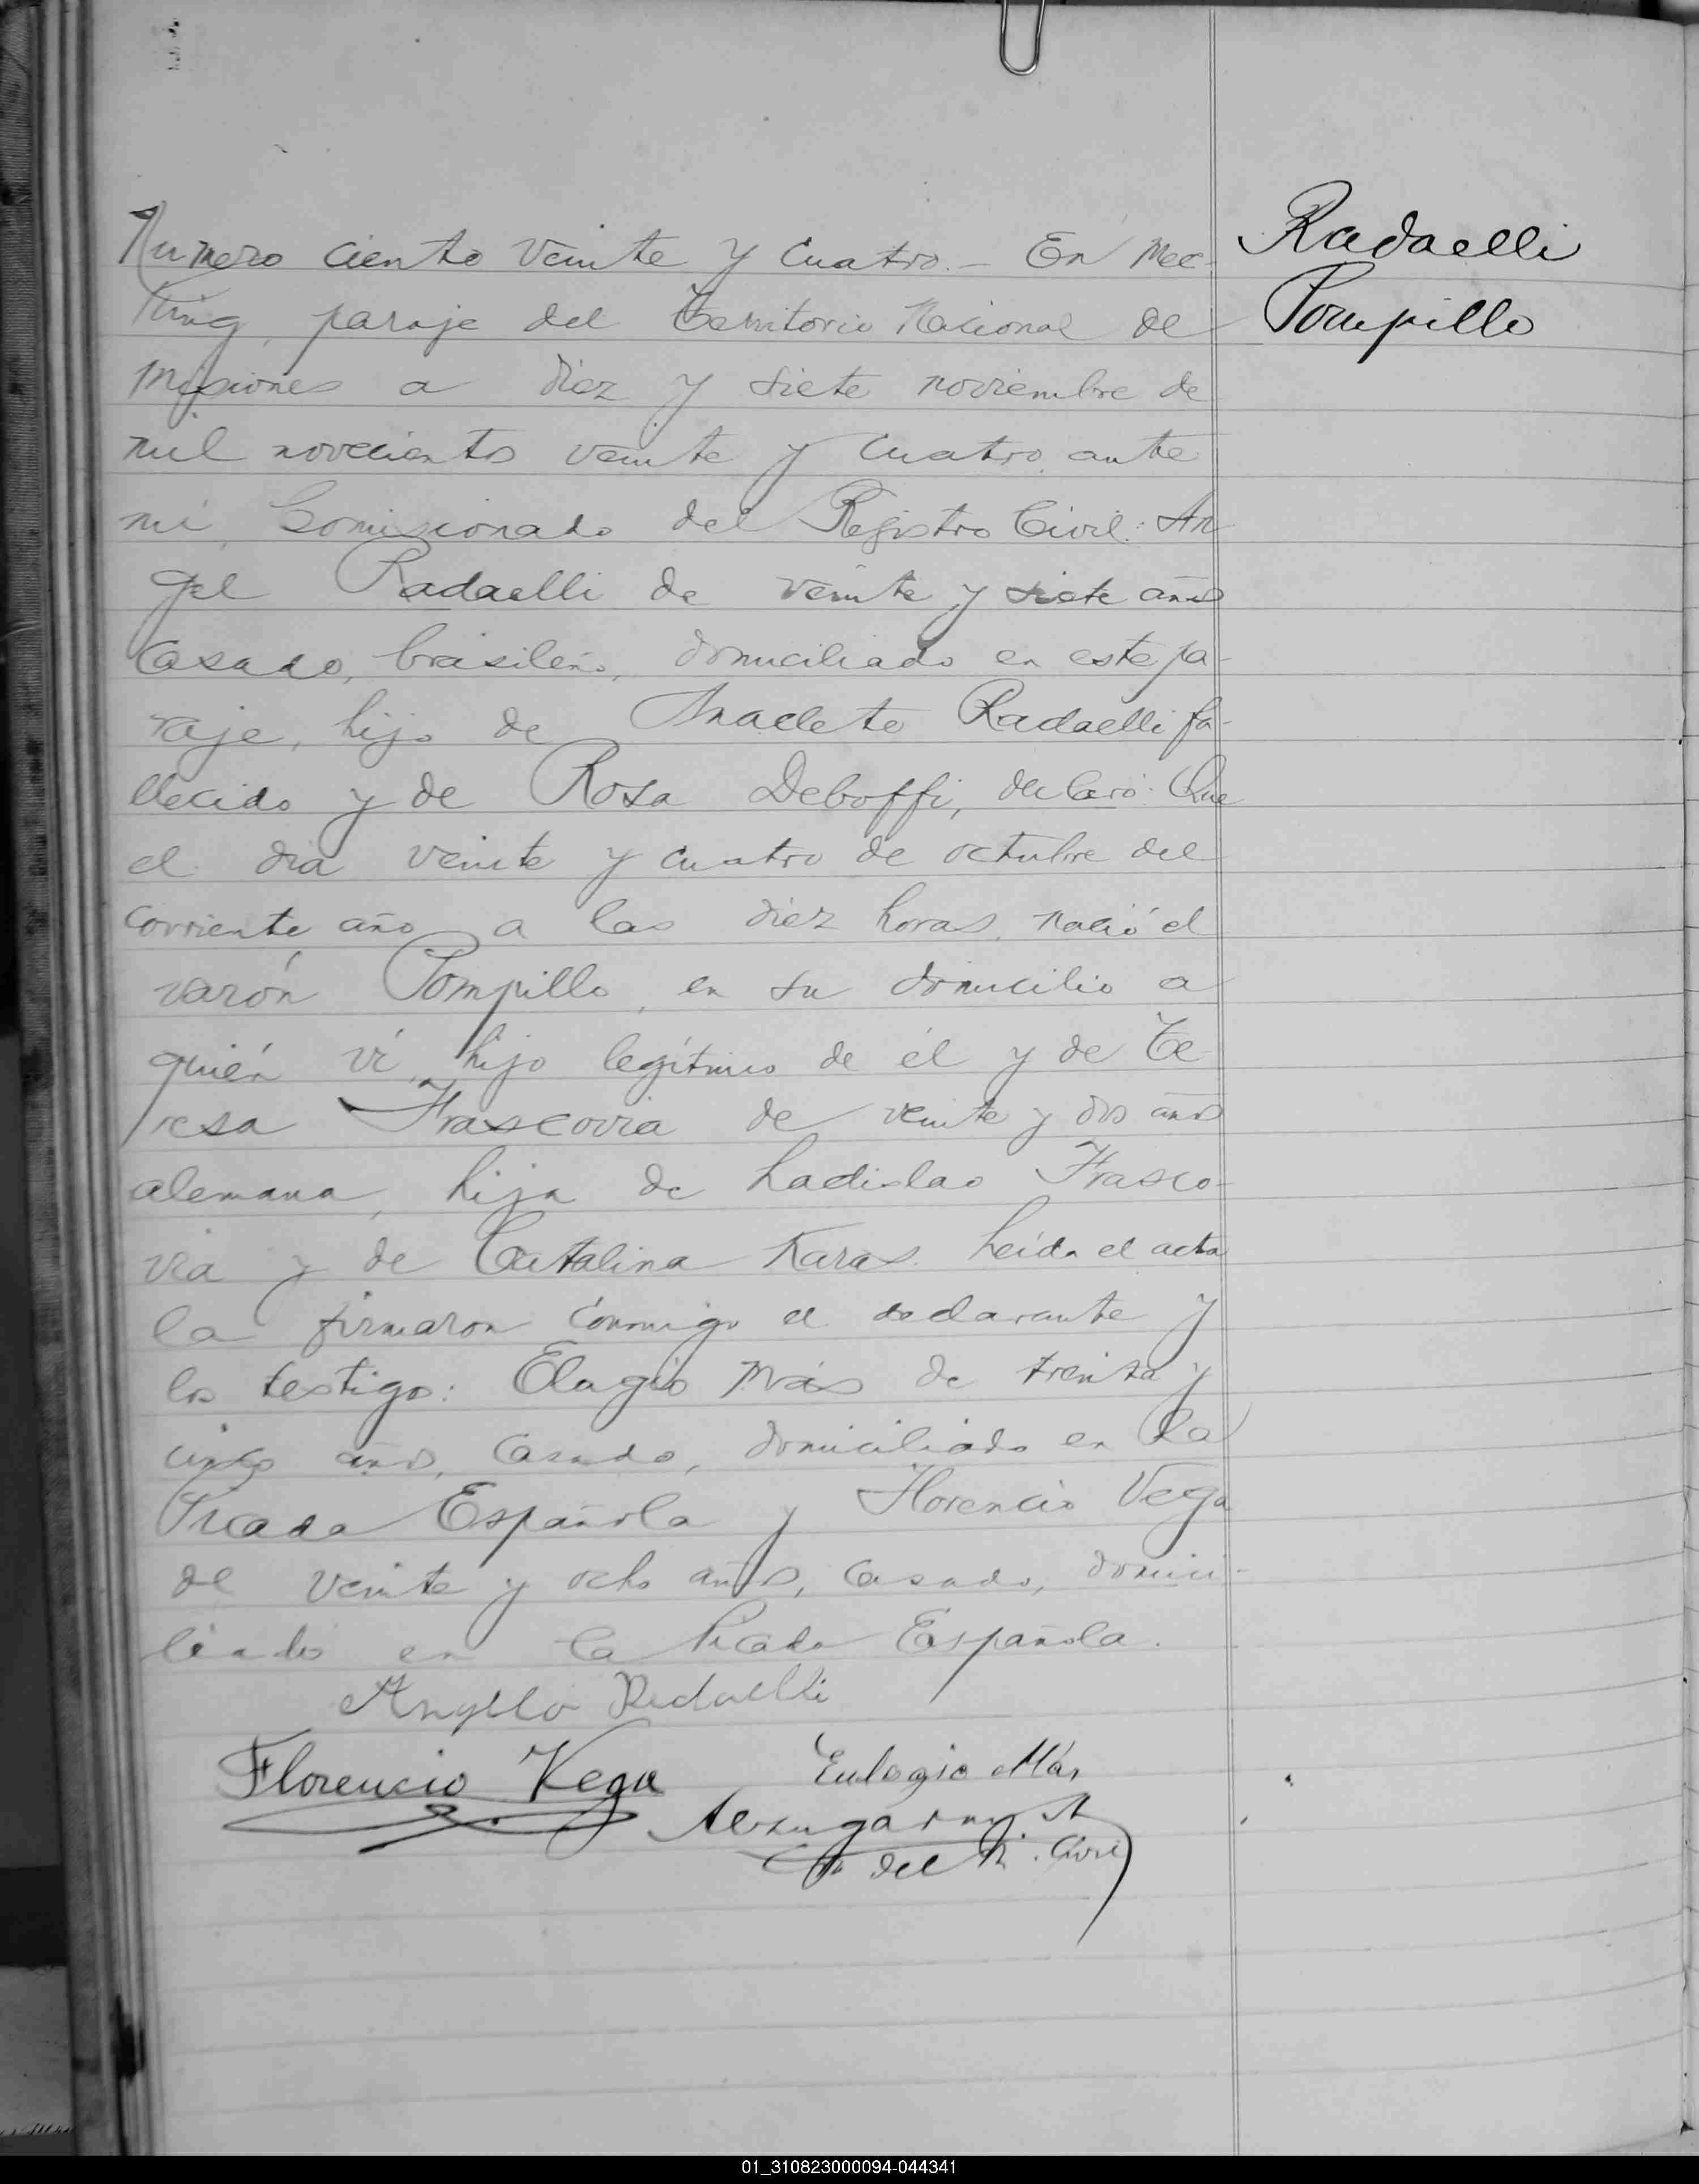 Numero ciento veinte y cuatro.- En Mec-
King, paraje del Territorio Nacional de
Misiones a diez y siete noviembre de
mil novecientos veinte y cuatro, ante
mi, Comisionado del Registro Civil: An-
gel Radaelli de veinte y siete años
casado, brasileño, domiciliado en este pa-
raje, hijo de Anacleto Radaelli fa-
llecido y de Rosa Deboffi, declaró: Que
el dia veinte y cuatro de octubre del
corriente año a las diez horas, nació el
varón Pompillo, en su domicilio a
quién ví, hijo legítimo de él y de Te
resa Frascovia de veinte y dos años
alemana, hija de Ladislao Frasco-
via y de Catalina Karas. Leída el acta
la firmaron conmigo el declarante y
los testigo: Elogio Más de treinta y
cinco años, casado, domiciliado en La
Picada Española y Florencio Vega
de veinte y ocho años, casado, domici-
liado en la Picada Española.
Angello Redaelli
Florencio Vega Eulogio Más
del R. Civil
Radaelli
Pompillo
01_310823000094-044341